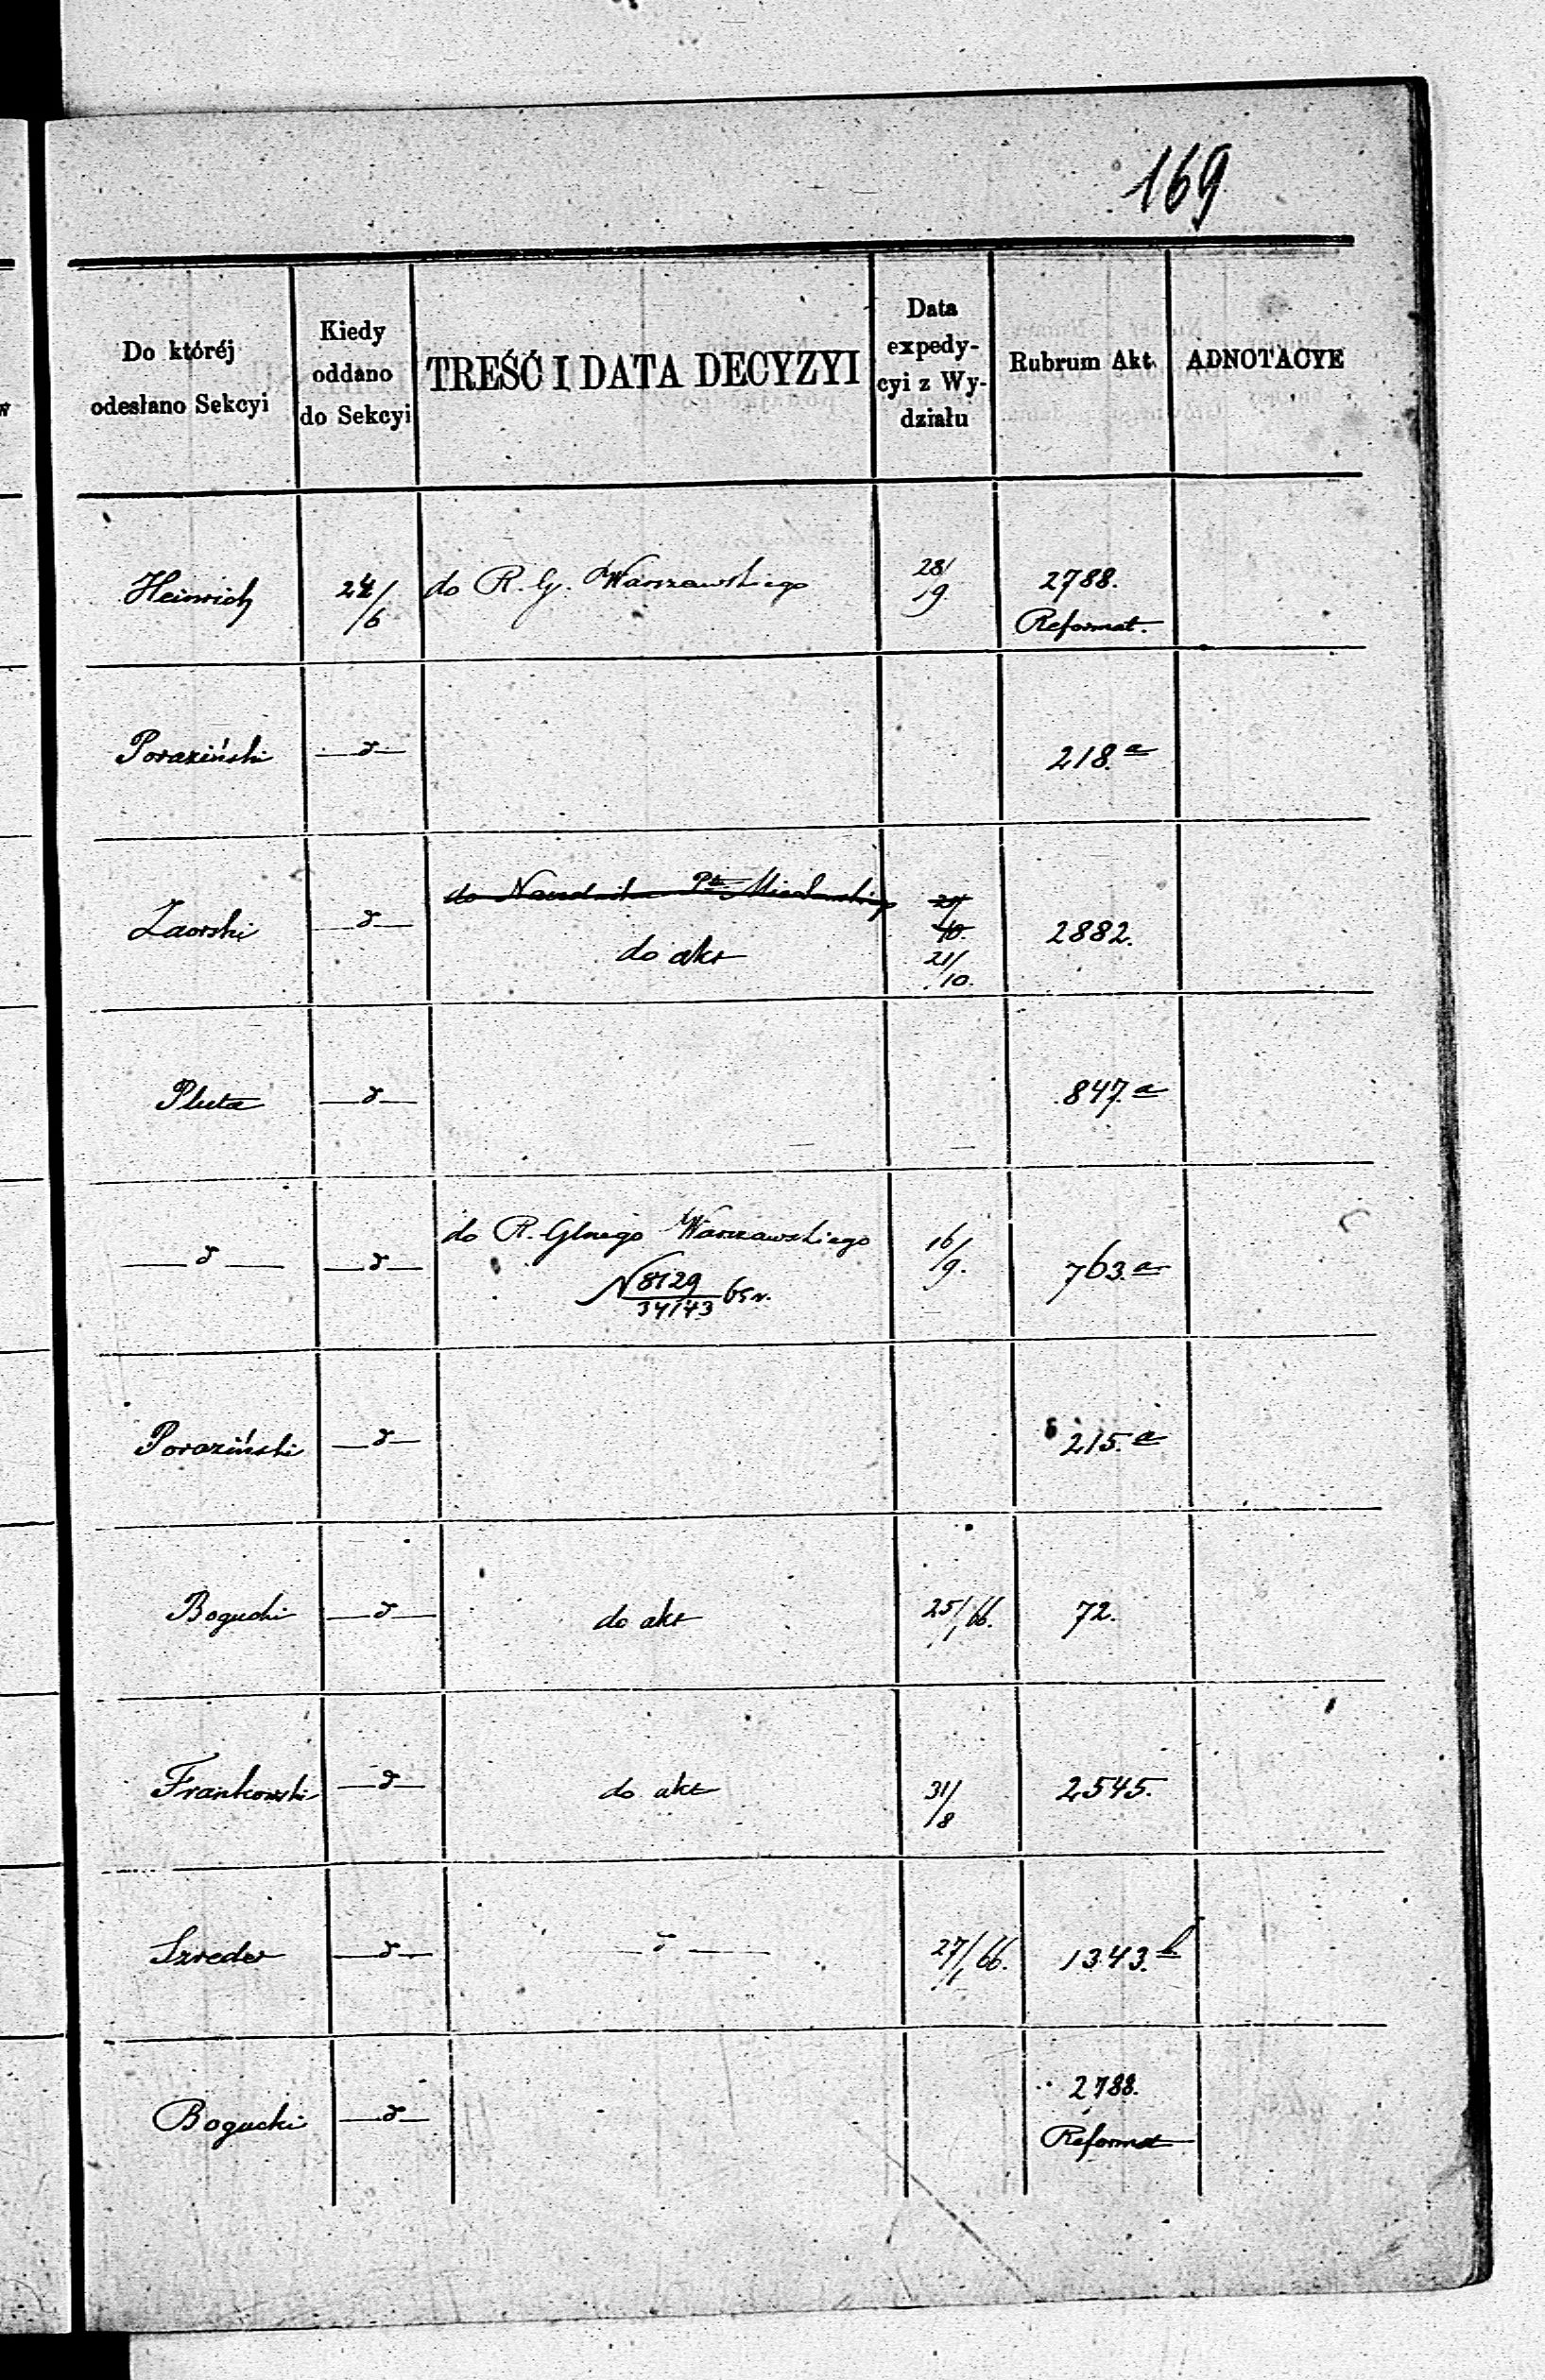 169
Do któréj
odesłano Sekcyi
Kiedy
oddano
do Sekcyi
TREŚĆ I DATA DECYZYI
Data
expedy-
cyi z Wy-
działu
Rubrum Akt.
ADNOTACYE
Heinrich 24/6 do R. G. Warszawskiego 28/9 2788.
Reformat.
Poraziński —d— 218.a
do Naczelnika Ptu
Zaorski —d— 20/10. 2882.
do akt 21/10.
Pluta —d— 847.a
—d— —d— do R. Glnego Warszawskiego 16/9. 763.a
N 8129/34143
Poraziński —d— 215.a
Bogucki —d— do akt 25/1 66. 72.
Frankowski —d— do akt 31/8 2545.
Szreder —d— —d— 27/1 66. 1343.b
Bogucki —d— 2788.
Reformat